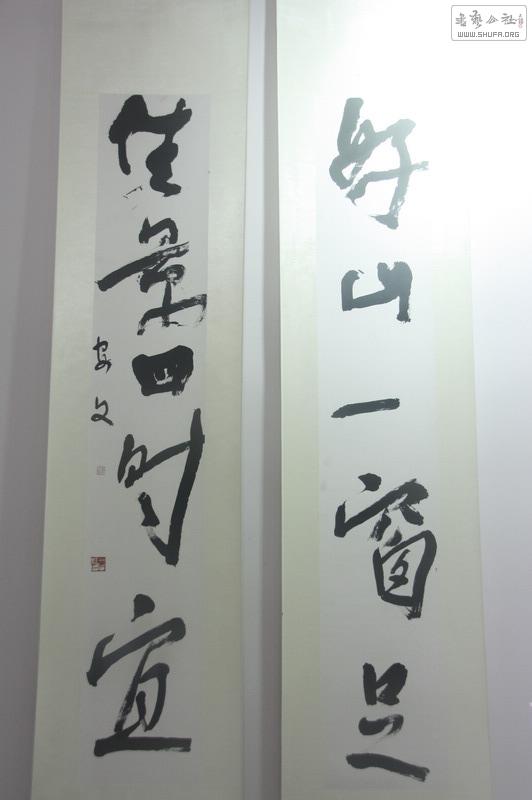 好山一窗足
佳景四时宜
安文
书艺公社
WWW.SHUFA.ORG